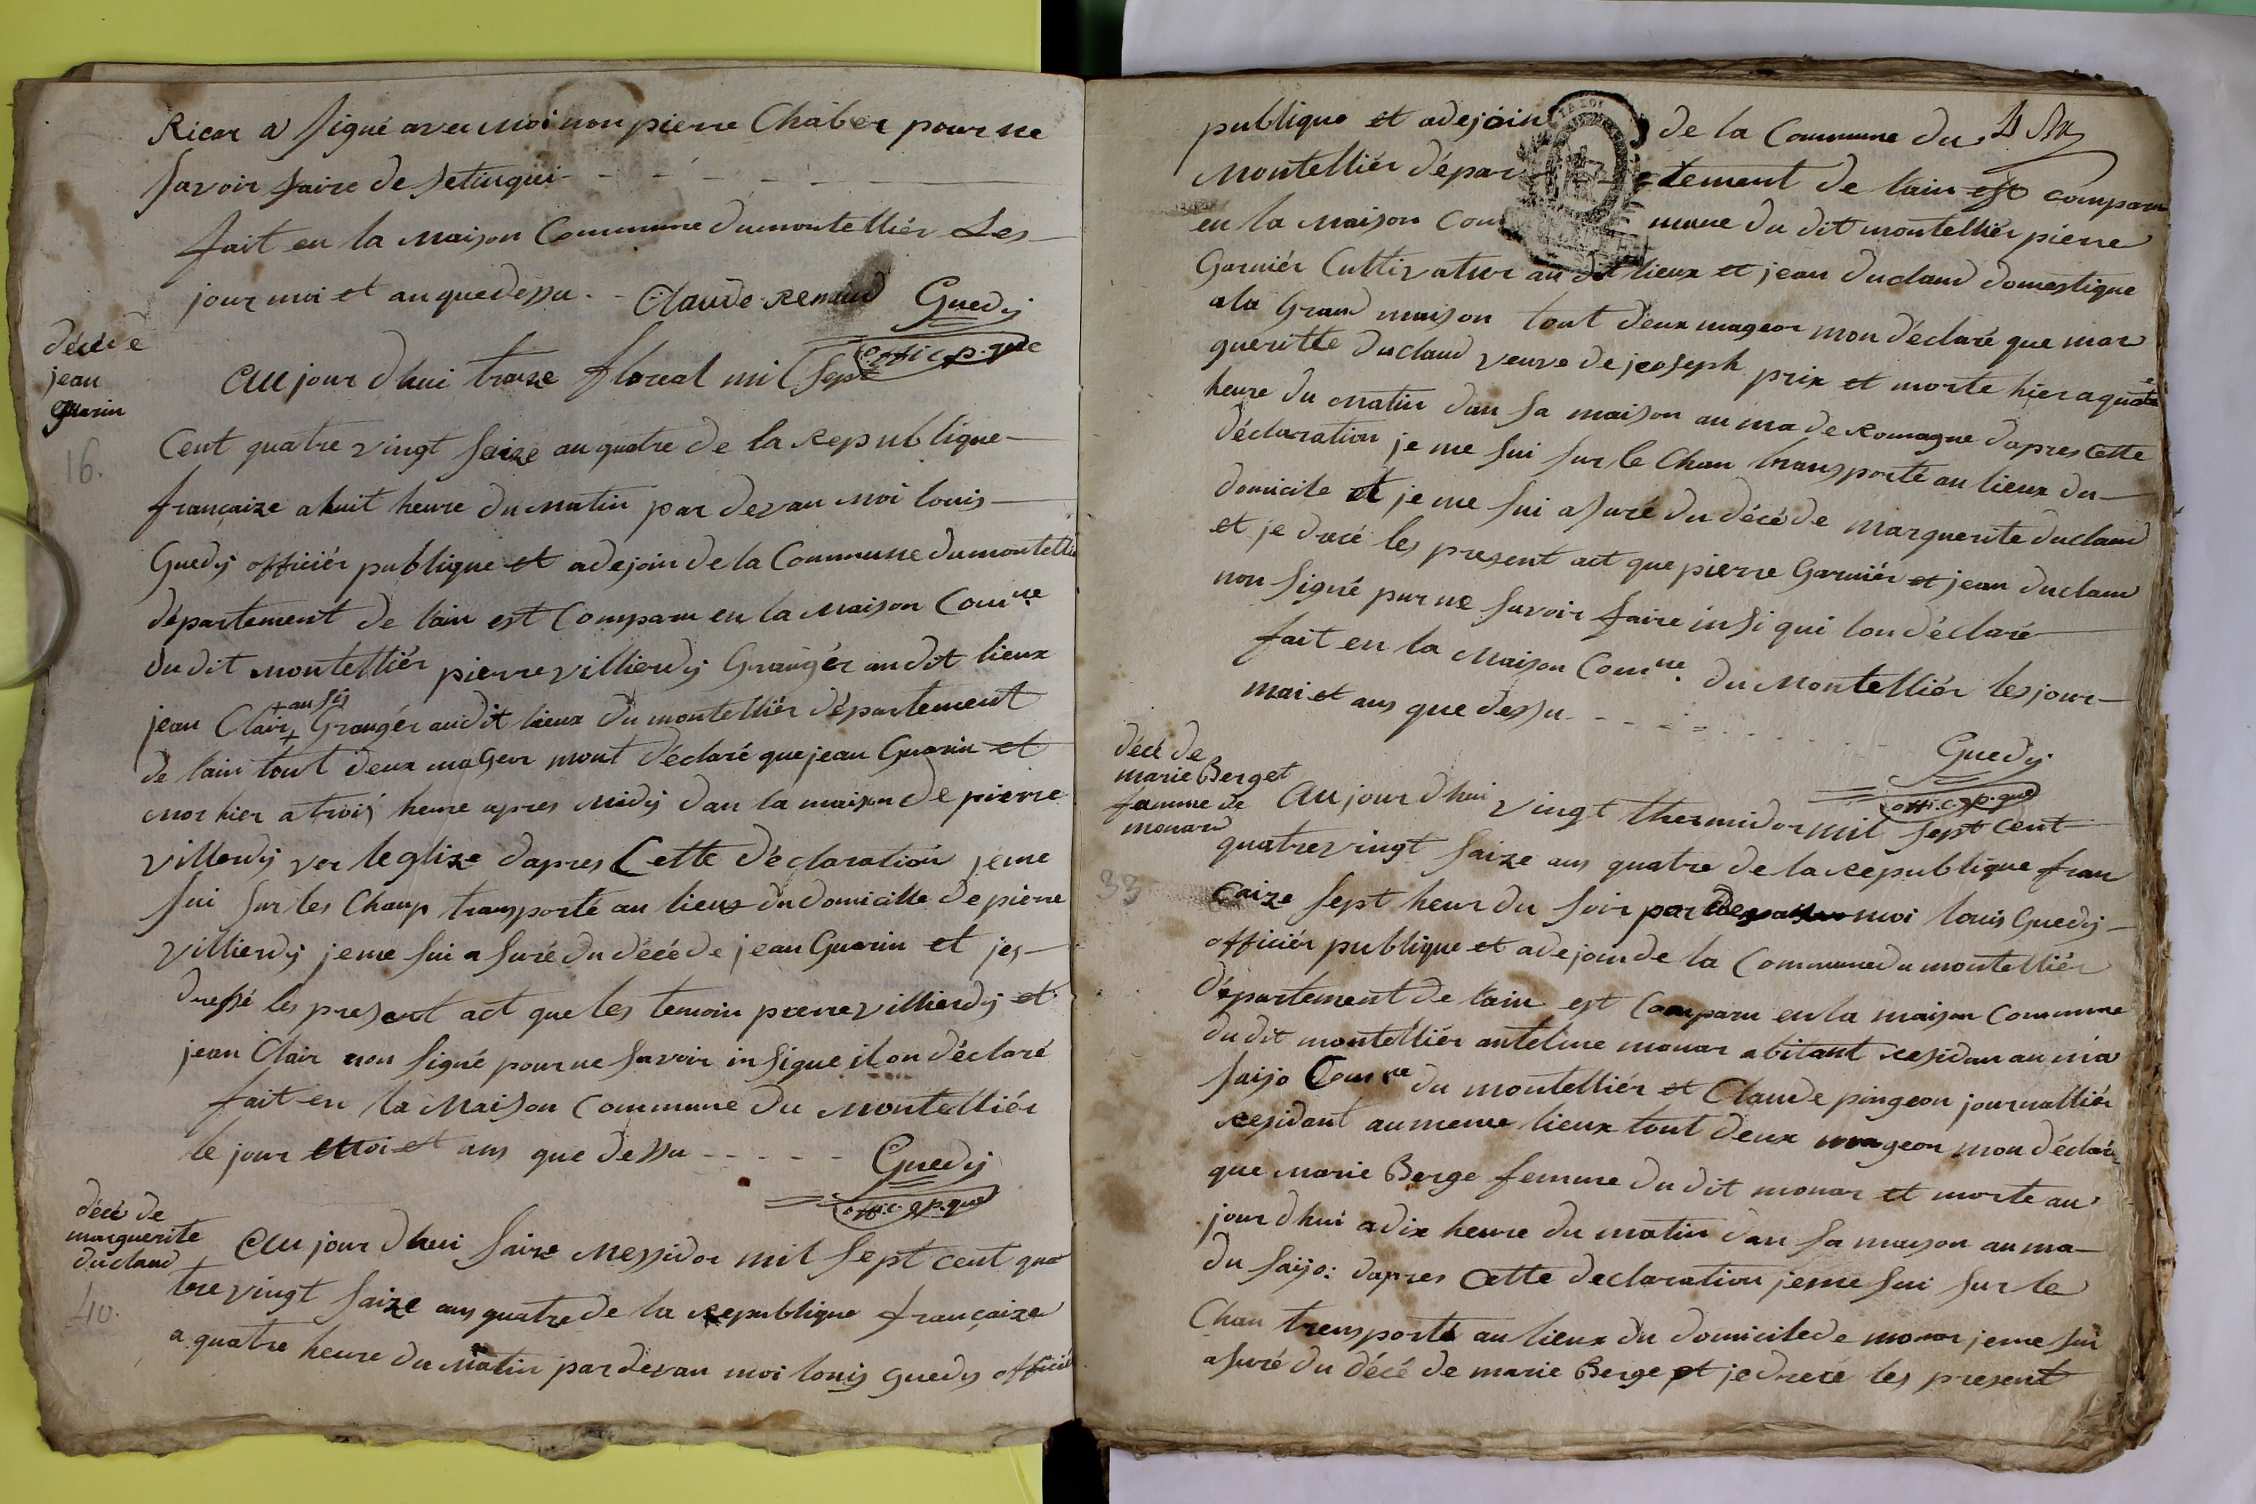 Ricar a signé avec moi non pierre Chaber pour ne
savoir faire de setinquii
fait en la maison Commune dumontelliér Les
jour moi et an quedessu. Claude Renaud Guedy
offic. p. que
décé de
jean
Guerin
16.
Au jour d'hui traize floreal mil sept
Cent quatre vingt saize an quatre de la republique
françaize a huit heure du matin par devan moi louis
Guedy officiér publique et adejoin de la Commune dumontellié
département de lain est Comparu en la maison Com.ne
du dit montelliér pierre villierdy Grangér au dit lieux
+ ausis
jean Clair + Grangér audit lieux du montelliér département
de lain tout deux mageur mont déclaré que jean Guerin et
mor hier a trois heure apres midy dan la maison de pierre
villerdy ver leglize dapres Cette déclaration je me
sui sur les Champ transporté au lieux du domicille de pierre
villierdy jeme sui a suré du décé de jean Guerin et jes
dressé les present act que les temoin pierre villierdy et
jean Clair non signé pour ne savoir insigue il on déclaré
fait en la Maison Commune du Montelliér
le jour moi et ans que dessu Guedy
offic. p. que
décé de
marguerite
ducland
40.
Au jour dhui saize Messidor mil sept cent qua
tre vingt saize ans quatre de la republique françaize
a quatre heure du matin par devan moi louis guedy officié
publique et adejoin de la Commune du
Montelliér dépar tement de lain est comparu
en la maison Com mune du dit montelliér pierre
Garniér Cultivateur au dit lieux et jean ducland domestique
ala Grand maison tout deux mageor mon déclaré que mar
gueritte ducland veuve de jeoseph prix et morte hier a quatre
heure du matin dan sa maison au ma de Romagne dapres Cette
déclaration je me sui sur le Chan transporté au lieux du
domicile et je me sui asuré du décé de marguerite ducland
et je drecé les present act que pierre Garniér et jean ducland
non signé pur ne savoir faire insi qui lon déclaré
fait en la Maison Com.ne du Montelliér les jour
moi et ans que dessu
Guedy
offic. p. que
décé de
marie Berget
famme de
monard
33
Au jour dhui vingt thermidor mil sept cent
quatre vingt saize ans quatre de la republique fran
çaize sept heur du soir par devan moi louis Guedy
officiér publique et adejoin de la Commune du montelliér
département de lain est Comparu en la maison Commune
du dit montelliér anteline monar abitant residan au ma
saijo Com.ne du montelliér et Claude pingeon journalliér
residant aumeme lieux tout deux mageor mon déclaré
que marie Berge femme du dit monar et morte au
jour dhui a dix heure du matin dan sa maison au ma
du saijo: dapres Cette declaration jeme sui sur le
Chan transporté au lieux du domicile de monar jeme sui
asuré du décé de marie Berge et je drecé les present